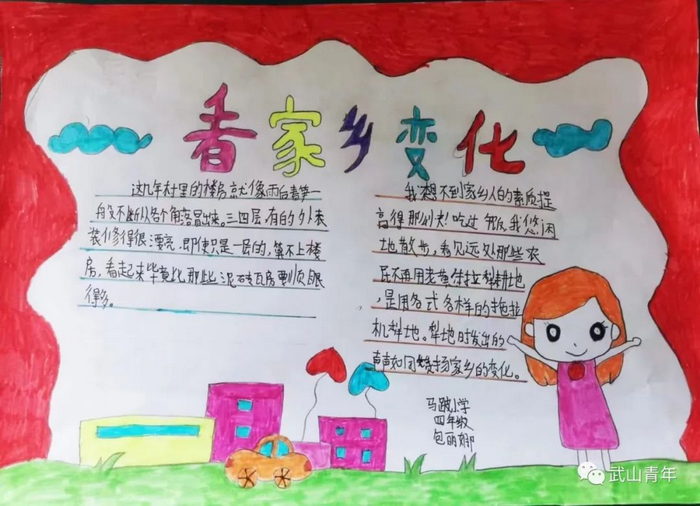 香家乡变化
这几年村里的楼房就像雨后春笋一
般不断从各个角落冒出来。三四层有的外表
装修得很漂亮.即使只是一层的,算不上楼
房,看起来毕竟比那些泥砖瓦房要顺眼
得多。
我想不到家乡人的素质提
高得那么快!吃过饭后,我悠闲
地散步,看见远处那些农
民不再用老黄牛拉犁耕地
,是用各式各样的拖拉
机犁地。犁地时发出的
声如同赞扬家乡的变化。
马跛小学
四年级
包丽娜
武山青年